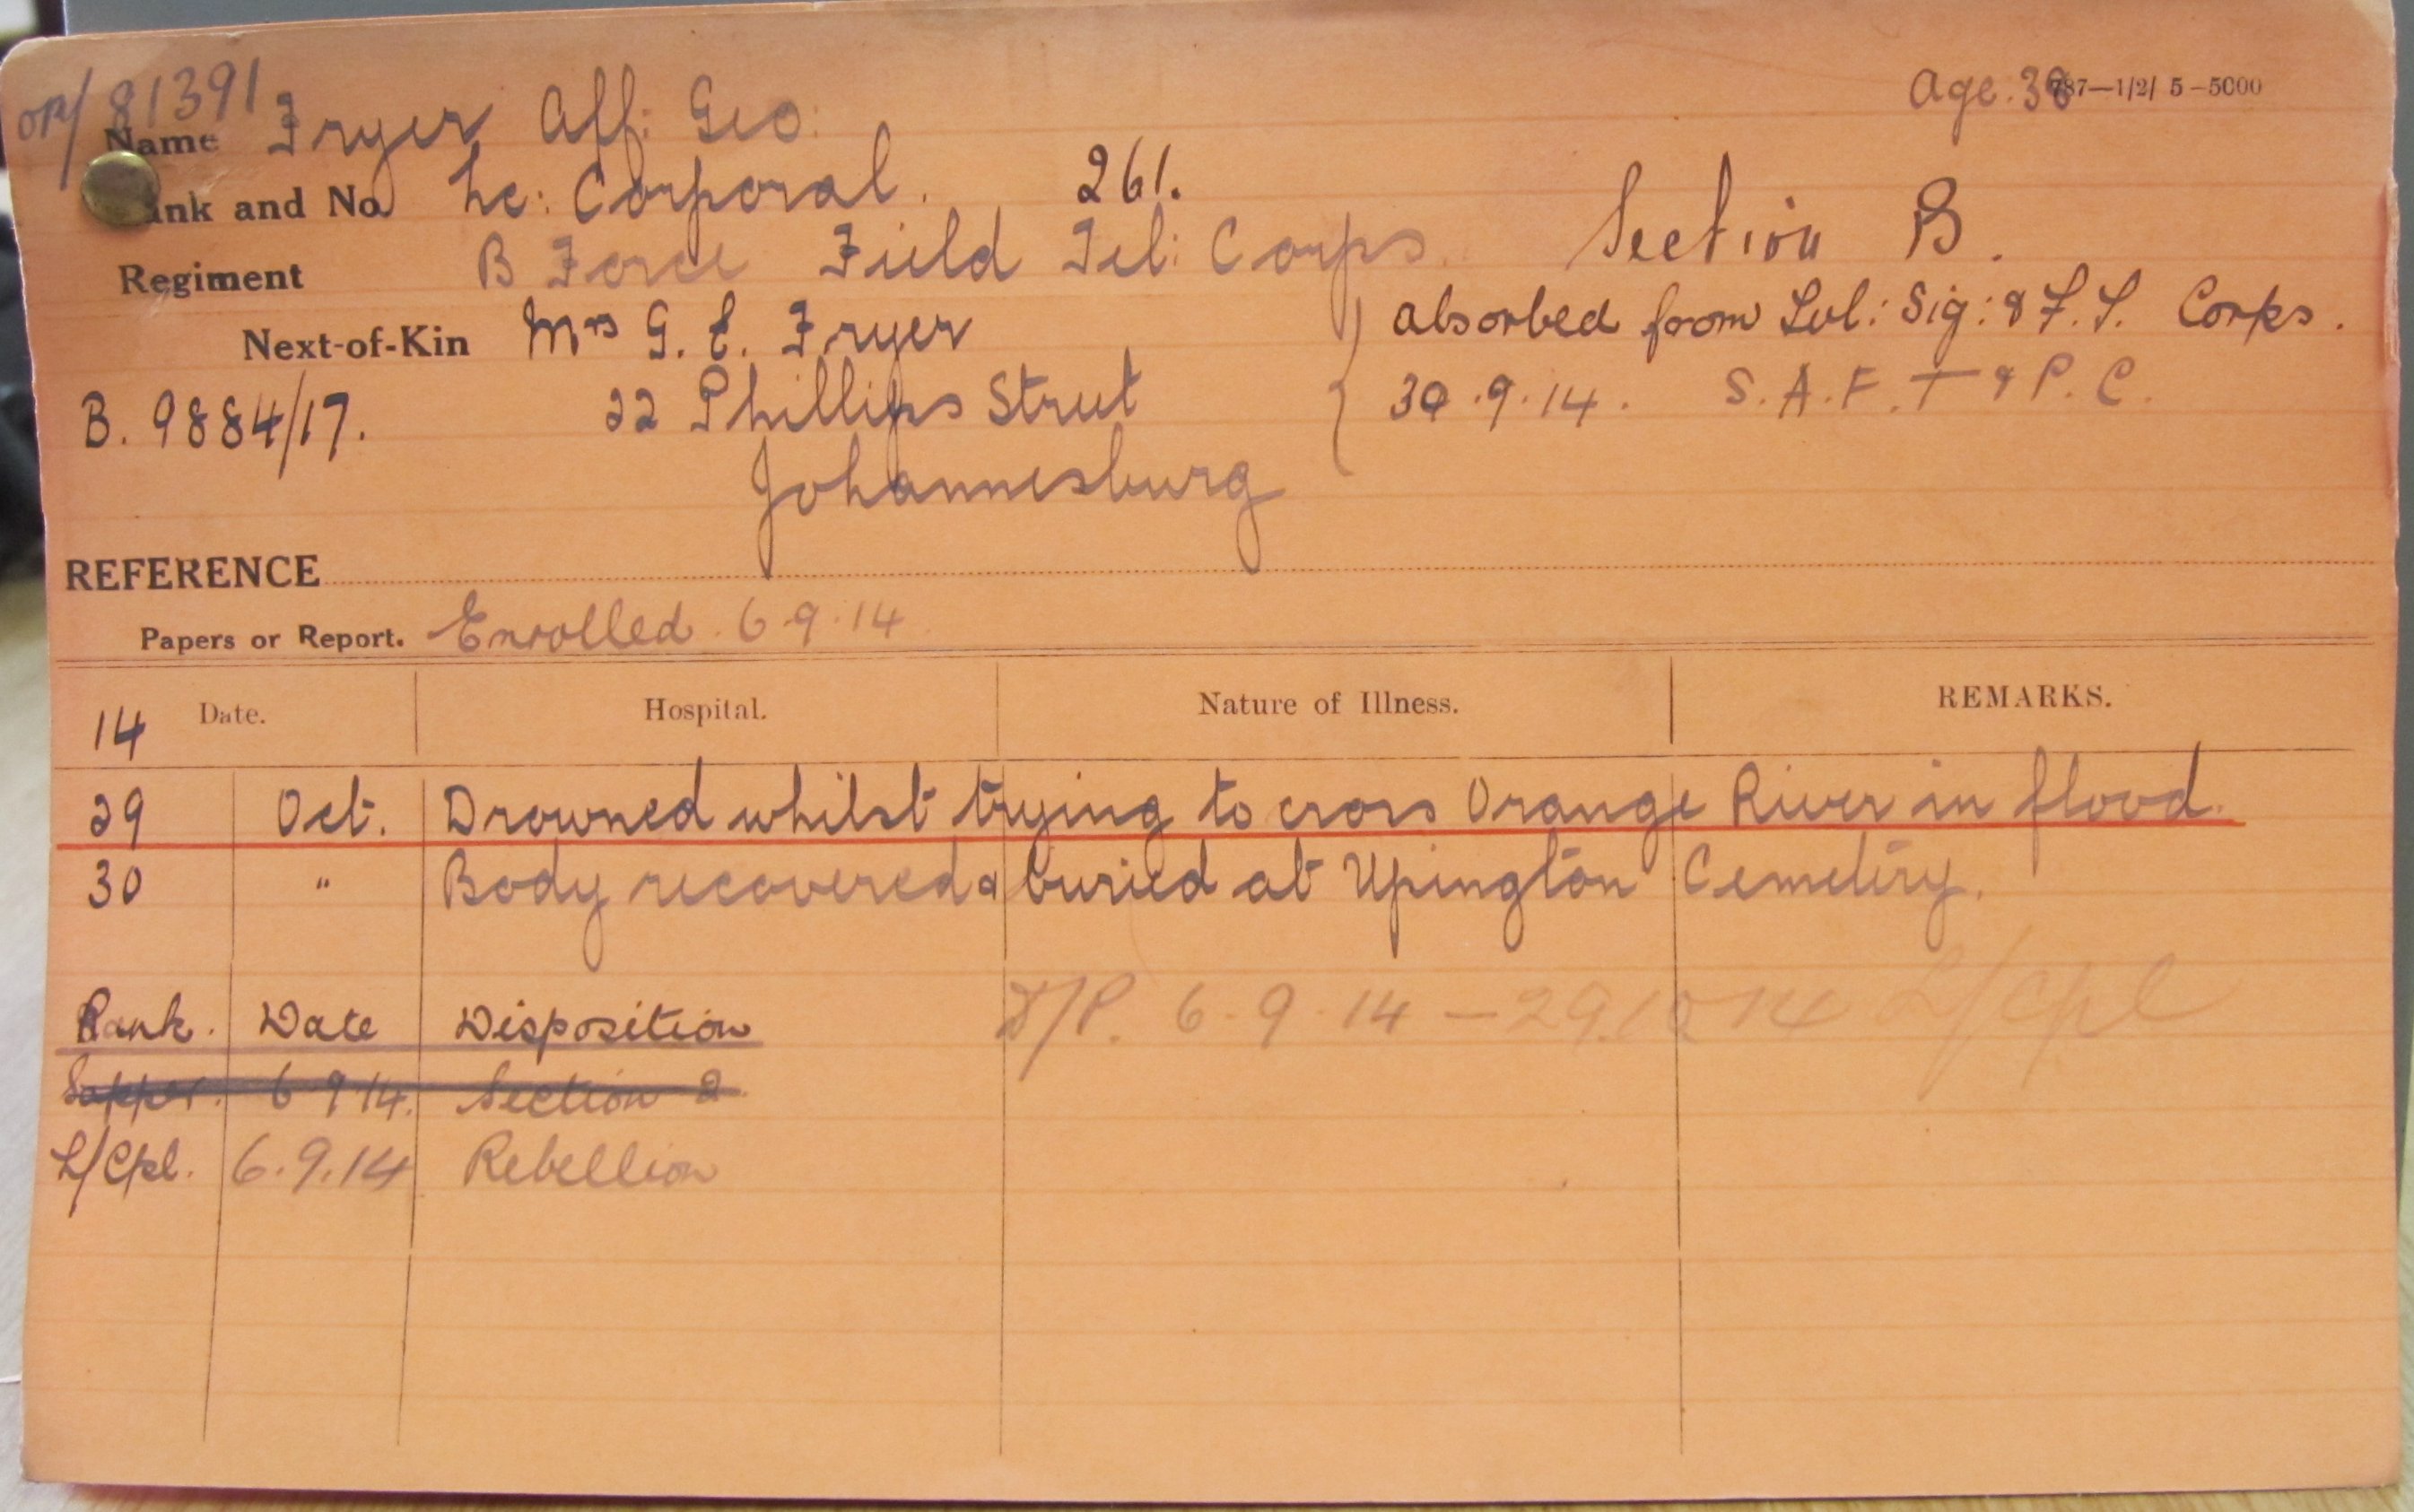 OR/ 81391
Age. 38 787—1/2/ 5-5000
Name Fryer Alf: Geo:
ank and No. Lc: Corporal. 261.
Regiment B Force Field Tel: Corps. Section B.
Next-of-Kin Mrs G. E. Fryer } absorbed from Tel: Sig: & F. T. Corps.
B. 9884/17. 22 Phillips Street 30.9.14. S. A. F. T & P. C.
Johannesburg
REFERENCE
Papers or Report. Enrolled. 6.9.14
14 Date. Hospital. Nature of Illness. REMARKS.
29 Oct. Drowned whilst trying to cross Orange River in flood.
30 " Body recovered & buried at Upington Cemetery.
Rank. Date Disposition
6.9.14 – 29.10.14 L/Cpl
Sapper. 6.9.14. Section 2.
L/Cpl. 6.9.14 Rebellion